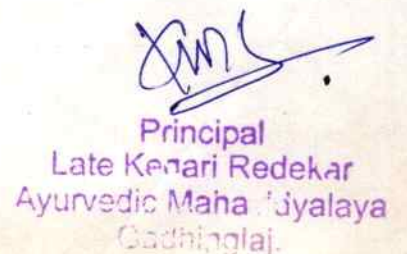 Principal
Late Kedari Redekar
Ayurvedic Maha
Gadhinglaj.